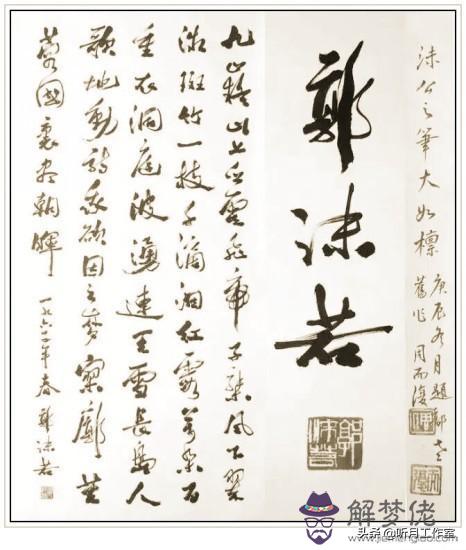 沫公之筆大如椽
庚辰冬月題
舊作 周而復
郭沫若
郭沫若
九嶷山上白雲飛帝子乘風下翠
微斑竹一枝千滴淚紅霞萬朵百
重衣洞庭波湧連天雪長島人
歌動地詩我欲因之夢寥廓芙
蓉國裏盡朝暉
一九六二年春 郭沫若
解梦佬
头条@听月工作室